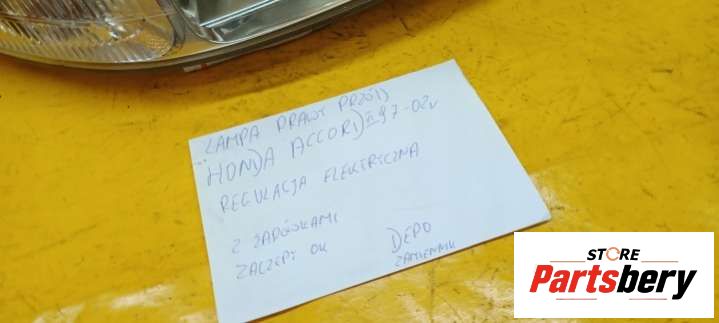 LAMPA PRAWY PRZÓD
HONDA ACCORD 97-02r
REGULACJA ELEKTRYCZNA
Z ŻARÓWKAMI
ZACZEPY OK
DEPO
ZAMIENNIK
STORE
Partsbery